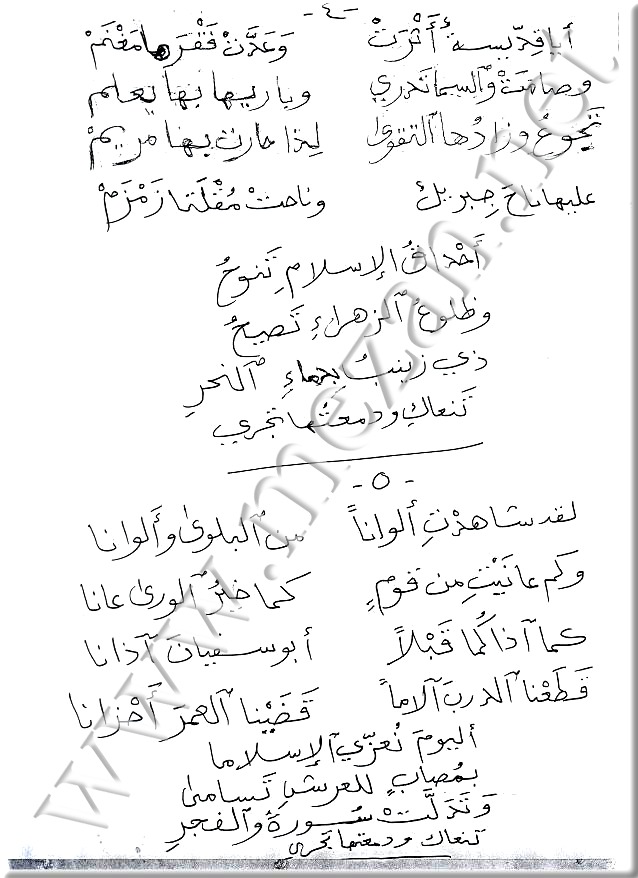 - ٤ -
أيا قدّيسةً أَثْرَتْ وَعَدَّتْ فَقْرَها مَغْنَمْ
وصامَتْ وٱلسما تدري وباريها بها يعلم
تَجُوعُ وزادُها ٱلتقوىٰ لِذا حارت بها مريمْ
عليها ناحَ جبريلٌ وناحتْ مُقْلَتا زَمْزَمْ
أَحْداقُ الإسلامِ تَنوحُ
وضلوعُ ٱلزهراءِ تَصيحُ
ذي زينبُ بدماءِ ٱلنحرِ
تَنعاكِ ودمعتُها تجري
- ٥ -
لقد شاهدْتِ ألواناً من ٱلبلوىٰ وألوانا
وكم عانَيْتِ من قومٍ كما خيرُ ٱلورىٰ عانا
كما آذاكُما قَبْلاً أبو سفيانَ آذانا
قَطَعْنا ٱلدربَ آلاماً قَضَيْنا ٱلعمرَ أَحْزانا
أليومَ نُعزّي ٱلإسلاما
بمُصابٍ للعرشِ تَسامىٰ
وَتَدَلَّتْ سُورةُ وٱلفجرِ
تنعاك ودمعتها تجري
www.mezan.net